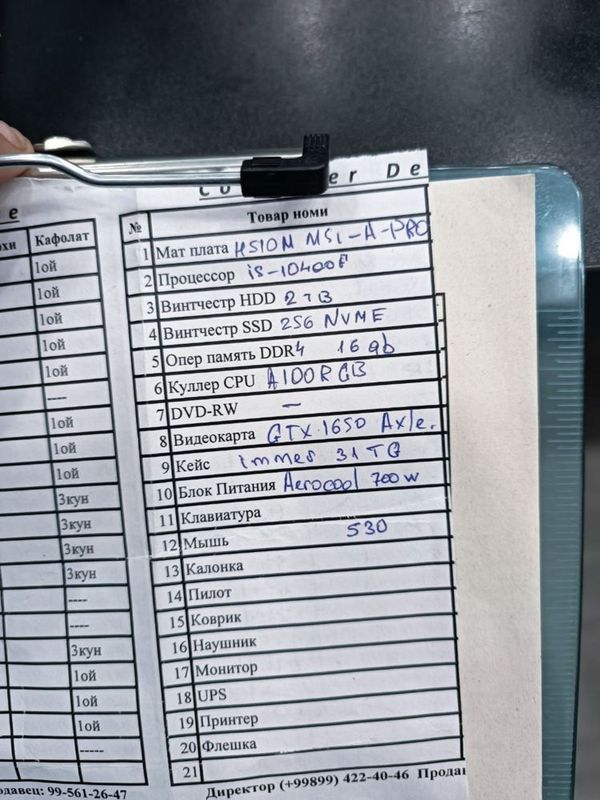 e
Co er De
Кафолат
1ой
1ой
1ой
1ой
1ой
----
1ой
1ой
1ой
3кун
3кун
3кун
3кун
----
----
3кун
1ой
1ой
1ой
-----
давец: 99-561-26-47
№ Товар номи
1 Мат плата H510M MSI-A-PRO
2 Процессор i5-10400F
3 Винтчестр HDD 2TB
4 Винтчестр SSD 256 NVME
5 Опер память DDR4 16gb
6 Куллер CPU A100RGB
7 DVD-RW —
8 Видеокарта GTX.1650 Axle.
9 Кейс immer 31TG
10 Блок Питания Aerocool 700w
11 Клавиатура
12 Мышь 530
13 Калонка
14 Пилот
15 Коврик
16 Наушник
17 Монитор
18 UPS
19 Принтер
20 Флешка
21
Директор (+99899) 422-40-46 Прода